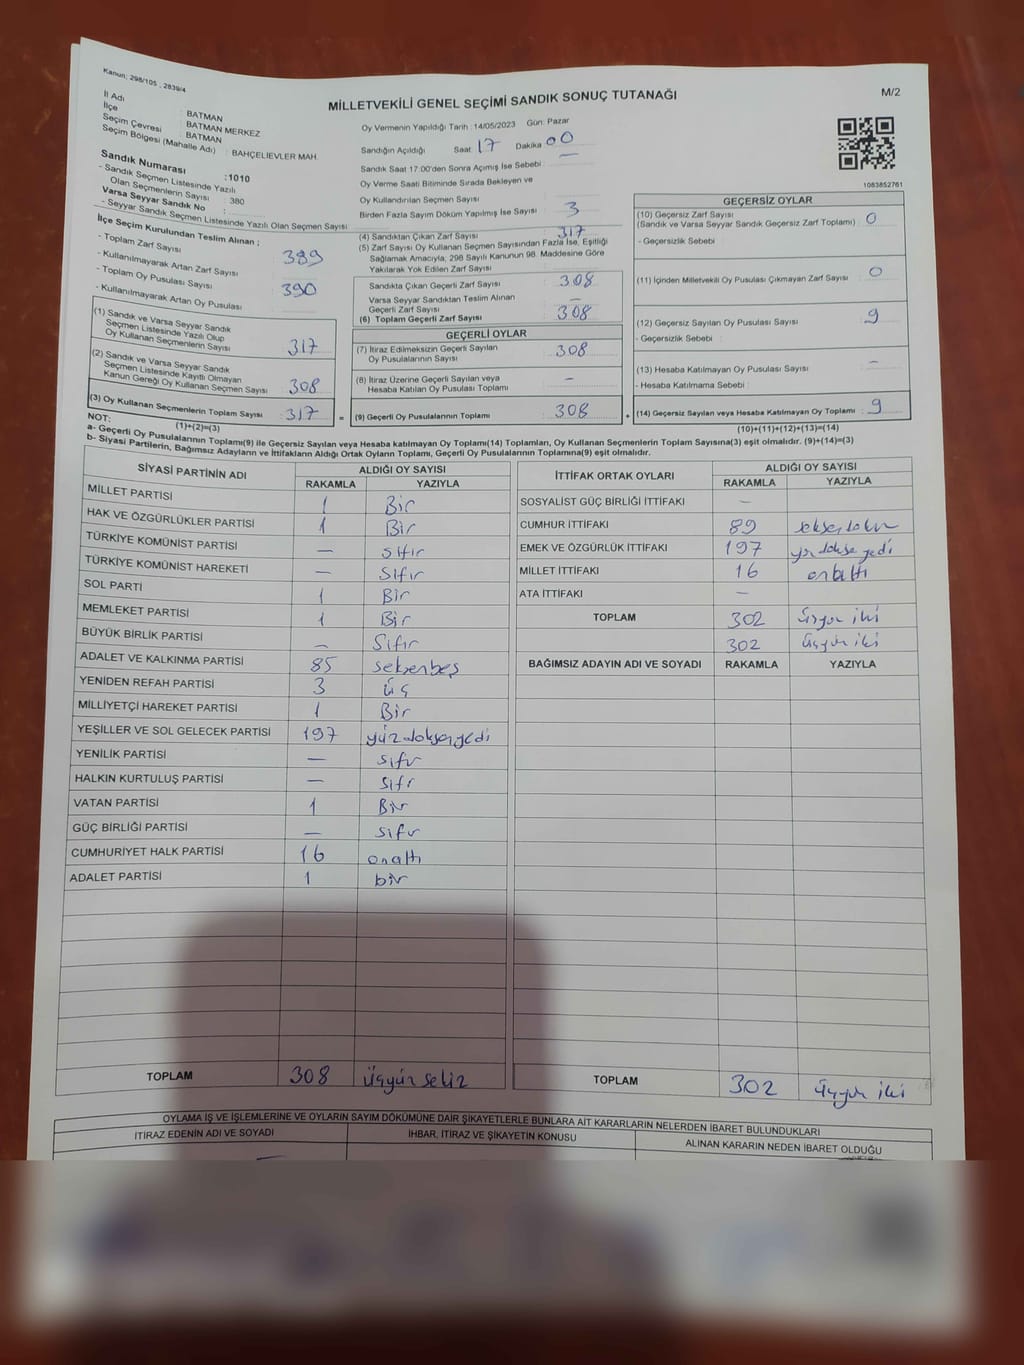 Kanun; 298/105 , 2839/4
MİLLETVEKİLİ GENEL SEÇİMİ SANDIK SONUÇ TUTANAĞI
M/2
İl Adı : BATMAN
İlçe : BATMAN MERKEZ
Seçim Çevresi : BATMAN
Seçim Bölgesi (Mahalle Adı) : BAHÇELİEVLER MAH.
Sandık Numarası :1010
- Sandık Seçmen Listesinde Yazılı
Olan Seçmenlerin Sayısı : 380
Varsa Seyyar Sandık No :
- Seyyar Sandık Seçmen Listesinde Yazılı Olan Seçmen Sayısı
Oy Vermenin Yapıldığı Tarih :14/05/2023 Gün: Pazar
Sandığın Açıldığı Saat 17 Dakika 00
Sandık Saat 17:00'den Sonra Açılmış İse Sebebi : —
Oy Verme Saati Bitiminde Sırada Bekleyen ve
Oy Kullandırılan Seçmen Sayısı
Birden Fazla Sayım Döküm Yapılmış İse Sayısı 3
1083852761
İlçe Seçim Kurulundan Teslim Alınan ;
- Toplam Zarf Sayısı 389
- Kullanılmayarak Artan Zarf Sayısı
- Toplam Oy Pusulası Sayısı 390
- Kullanılmayarak Artan Oy Pusulası
(1) Sandık ve Varsa Seyyar Sandık
Seçmen Listesinde Yazılı Olup
Oy Kullanan Seçmenlerin Sayısı 317
(2) Sandık ve Varsa Seyyar Sandık
Seçmen Listesinde Kayıtlı Olmayan
Kanun Gereği Oy Kullanan Seçmen Sayısı 308
(3) Oy Kullanan Seçmenlerin Toplam Sayısı 317 =
(1)+(2)=(3)
(4) Sandıktan Çıkan Zarf Sayısı 317
(5) Zarf Sayısı Oy Kullanan Seçmen Sayısından Fazla İse, Eşitliği
Sağlamak Amacıyla, 298 Sayılı Kanunun 98. Maddesine Göre
Yakılarak Yok Edilen Zarf Sayısı
Sandıkta Çıkan Geçerli Zarf Sayısı 308
Varsa Seyyar Sandıktan Teslim Alınan
Geçerli Zarf Sayısı —
(6) Toplam Geçerli Zarf Sayısı 308
GEÇERLİ OYLAR
(7) İtiraz Edilmeksizin Geçerli Sayılan
Oy Pusulalarının Sayısı 308
(8) İtiraz Üzerine Geçerli Sayılan veya
Hesaba Katılan Oy Pusulası Toplamı —
(9) Geçerli Oy Pusulalarının Toplamı 308 +
GEÇERSİZ OYLAR
(10) Geçersiz Zarf Sayısı
(Sandık ve Varsa Seyyar Sandık Geçersiz Zarf Toplamı) : 0
- Geçersizlik Sebebi :
(11) İçinden Milletvekili Oy Pusulası Çıkmayan Zarf Sayısı : 0
(12) Geçersiz Sayılan Oy Pusulası Sayısı : 9
- Geçersizlik Sebebi :
(13) Hesaba Katılmayan Oy Pusulası Sayısı : —
- Hesaba Katılmama Sebebi :
(14) Geçersiz Sayılan veya Hesaba Katılmayan Oy Toplamı : 9
(10)+(11)+(12)+(13)=(14)
NOT:
a- Geçerli Oy Pusulalarının Toplamı(9) ile Geçersiz Sayılan veya Hesaba katılmayan Oy Toplamı(14) Toplamları, Oy Kullanan Seçmenlerin Toplam Sayısına(3) eşit olmalıdır. (9)+(14)=(3)
b- Siyasi Partilerin, Bağımsız Adayların ve İttifakların Aldığı Ortak Oyların Toplamı, Geçerli Oy Pusulalarının Toplamına(9) eşit olmalıdır.
SİYASİ PARTİNİN ADI ALDIĞI OY SAYISI
RAKAMLA YAZIYLA
MİLLET PARTİSİ 1 Bir
HAK VE ÖZGÜRLÜKLER PARTİSİ 1 Bir
TÜRKİYE KOMÜNİST PARTİSİ — sıfır
TÜRKİYE KOMÜNİST HAREKETİ — Sıfır
SOL PARTİ 1 Bir
MEMLEKET PARTİSİ 1 Bir
BÜYÜK BİRLİK PARTİSİ — Sıfır
ADALET VE KALKINMA PARTİSİ 85 seksenbeş
YENİDEN REFAH PARTİSİ 3 üç
MİLLİYETÇİ HAREKET PARTİSİ 1 Bir
YEŞİLLER VE SOL GELECEK PARTİSİ 197 yüzdoksanyedi
YENİLİK PARTİSİ — sıfır
HALKIN KURTULUŞ PARTİSİ — sıfır
VATAN PARTİSİ 1 Bir
GÜÇ BİRLİĞİ PARTİSİ — sıfır
CUMHURİYET HALK PARTİSİ 16 onaltı
ADALET PARTİSİ 1 bir
TOPLAM 308 üçyüz sekiz
İTTİFAK ORTAK OYLARI ALDIĞI OY SAYISI
RAKAMLA YAZIYLA
SOSYALİST GÜÇ BİRLİĞİ İTTİFAKI —
CUMHUR İTTİFAKI 89 seksendokuz
EMEK VE ÖZGÜRLÜK İTTİFAKI 197 yüzdoksanyedi
MİLLET İTTİFAKI 16 onaltı
ATA İTTİFAKI —
TOPLAM 302 üçyüz iki
302 üçyüz iki
BAĞIMSIZ ADAYIN ADI VE SOYADI RAKAMLA YAZIYLA
TOPLAM 302 üçyüz iki
OYLAMA İŞ VE İŞLEMLERİNE VE OYLARIN SAYIM DÖKÜMÜNE DAİR ŞİKAYETLERLE BUNLARA AİT KARARLARIN NELERDEN İBARET BULUNDUKLARI
İTİRAZ EDENİN ADI VE SOYADI İHBAR, İTİRAZ VE ŞİKAYETİN KONUSU ALINAN KARARIN NEDEN İBARET OLDUĞU